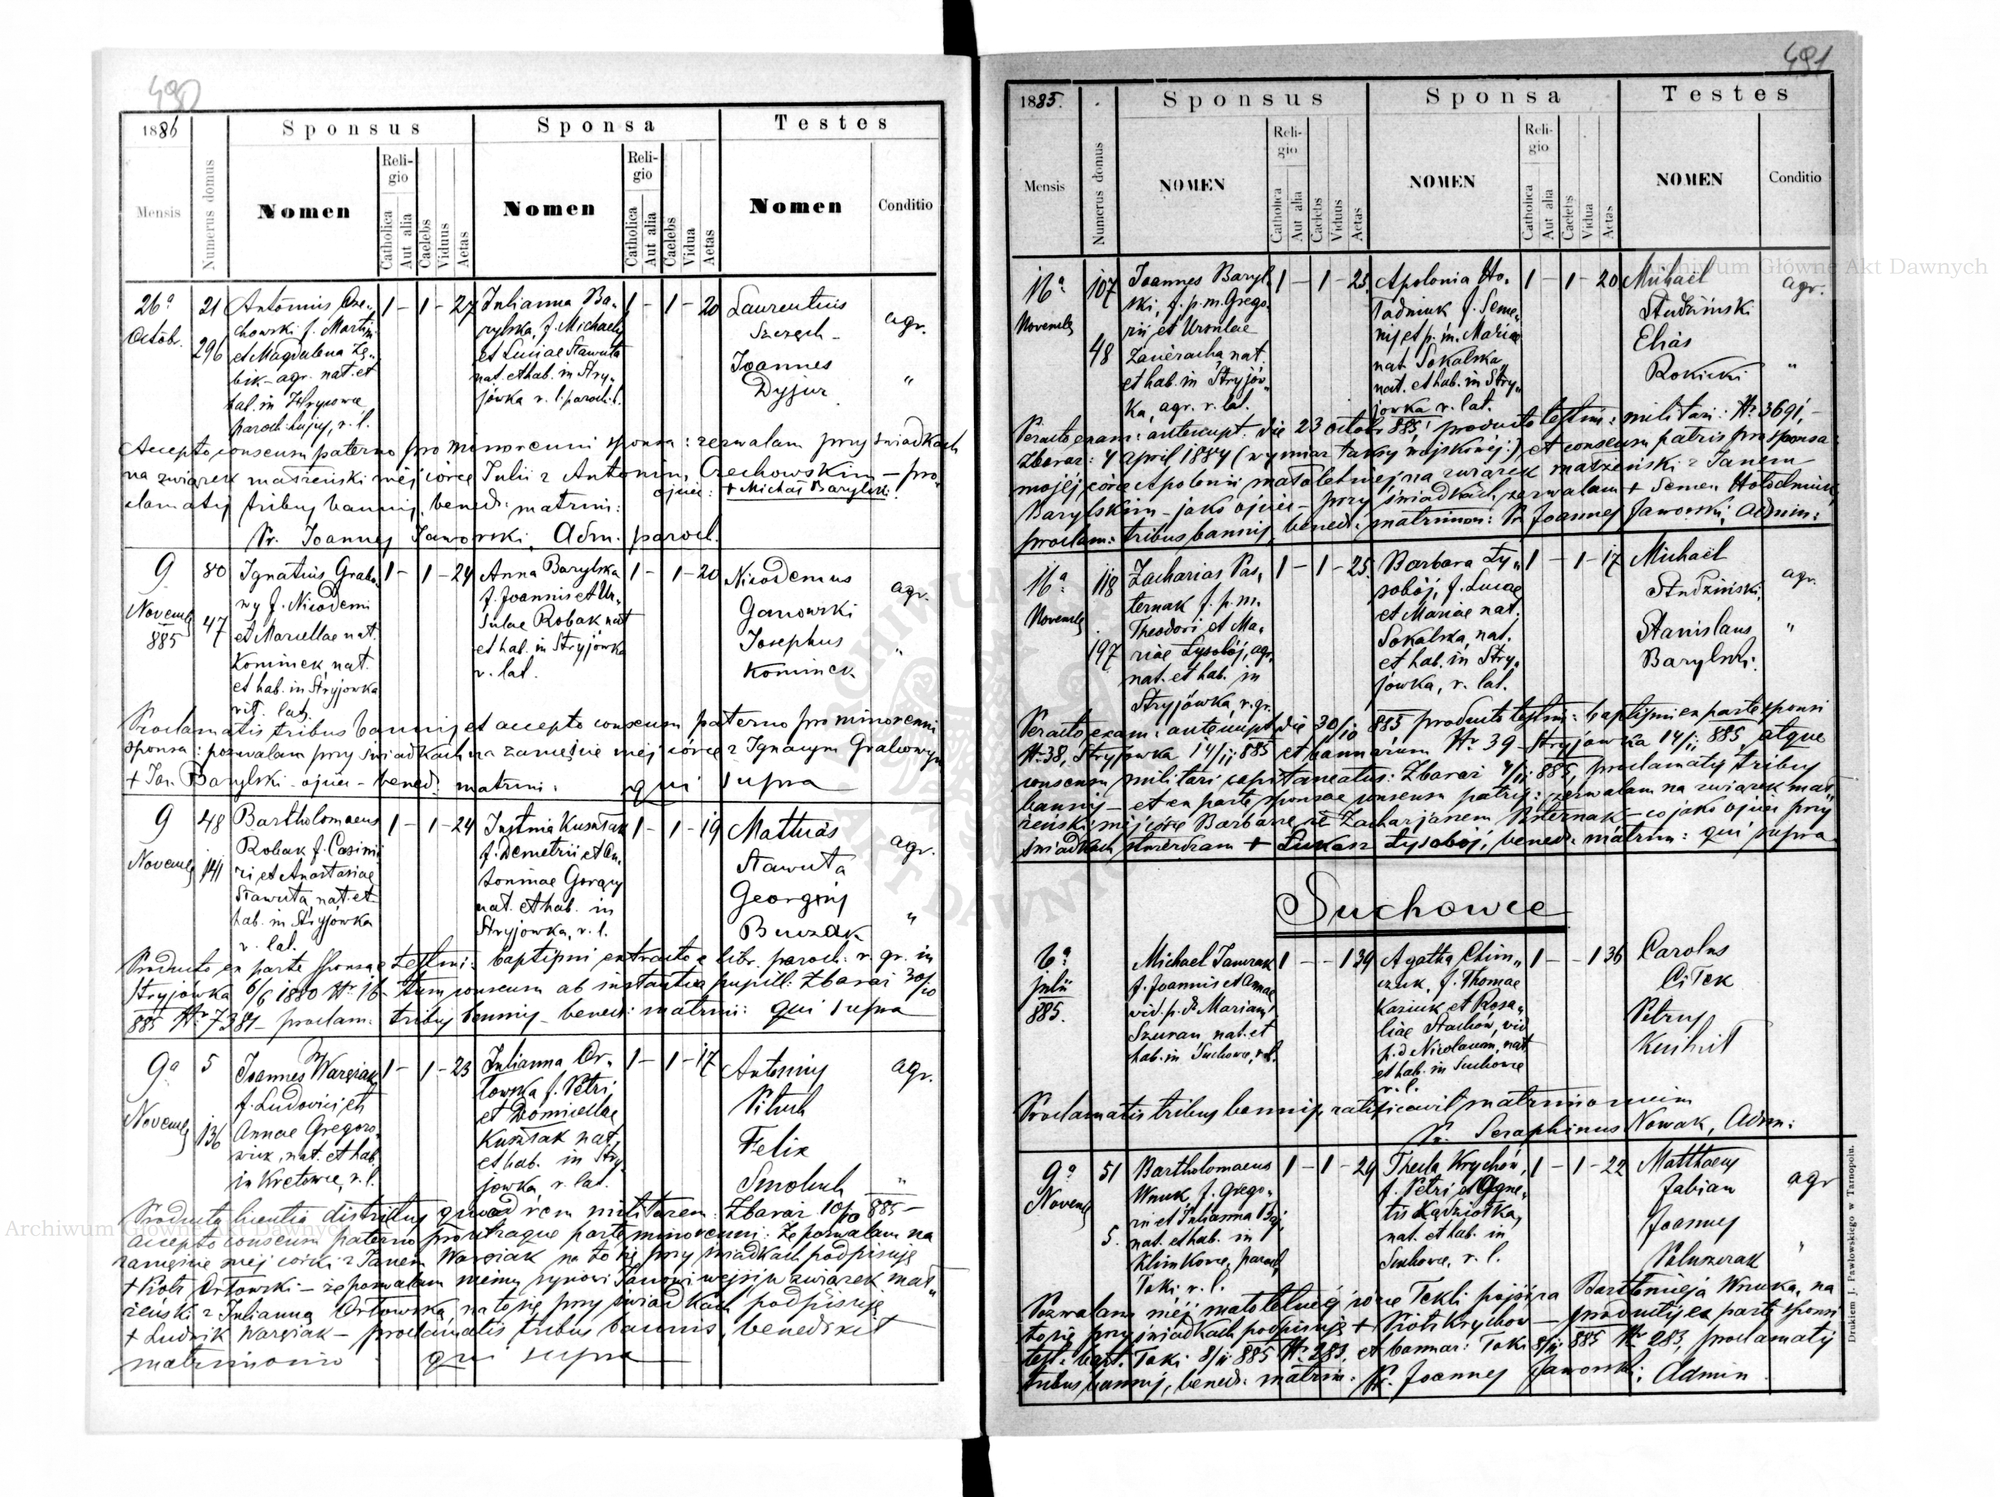 490
1886
Sponsus
Sponsa
Testes
Mensis
Numerus domus
Nomen
Religio
Catholica
Aut alia
Caelebs
Viduus
Aetas
Nomen
Religio
Catholica
Aut alia
Caelebs
Vidua
Aetas
Nomen
Conditio
26ª
Octob.
21
296
Antonius Orze-
chowski f. Martini
et Magdalena
agr. nat. et
hab. in
paroch. hujus, r. l.
1 – 1 – 27
Julianna Ba-
rylska, f. Michaelis
et Luciae Stawuta
nat. et hab. in Stry-
jówka r. l. paroch. l.
1 – 1 – 20
Laurentius
Szczęch –
Joannes
Dyjur
agr.
"
Accepto consensu paterno pro minorenni sponsa: zezwalam przy świadkach
na związek małżeński mej córce Julii z Antonim Orzechowskim – pro-
ojciec: + Michał Barylski.
clamatis tribus bannis, bened: matrim:
Pr. Joannes Jaworski, Adm. paroch.
9
Novemb
885
80
47
Ignatius Grabo-
wy f. Nicodemi
et Mariellae nat.
Kominek nat.
et hab. in Stryjowka
rit. lat.
1 – 1 – 24
Anna Barylska
f. Joannis et Ur-
sulae Robak nat
et hab. in Stryjówka
r. lat.
1 – 1 – 20
Nicodemus
Ganowski
Josephus
Kominek
agr.
"
Proclamatis tribus bannis et accepto consensu paterno pro minorenni
sponsa: pozwalam przy świadkach na zamęście mej córce z Ignacym Grabowym
+ Jan Barylski – ojciec – bened: matrim: qui supra
9
Novemb
48
141
Bartholomaeus
Robak f. Casimi
ri et Anastasiae
Stawuta, nat. et
hab. in Stryjówka
r. lat.
1 – 1 – 24
Justina Kusztak
f. Demetrii et An-
toninae Gorący
nat. et hab. in
Stryjowka, r. l.
1 – 1 – 19
Matthias
Stawuta
Georgius
Burzak
agr.
"
Producto ex parte sponsae testim: baptismi extracto e libr. paroch. r. gr. in
Stryjówka 6/6 1880 Nr. 16 – tum consensu ab instantia pupill: Zbaraż 30/10
885 Nr 7381 – proclam: tribus bannis – bened: matrim: qui supra
9ª
Novemb
5
136
Joannes Warsiak
f. Ludovici et
Annae Gregoro-
wicz, nat. et hab.
in Kretowce, r. l.
1 – 1 – 23
Julianna Or-
łowska f. Petri
et Domicellae
Kusztak nat.
et hab. in Stry-
jówka r. lat.
1 – 1 – 17
Antonius
Felix
Smoluch
agr.
"
Producta licentia districtus quoad rem militarem: Zbaraż 10/10 885 –
accepto consensu paterno pro utraque parte minorenni: Że pozwalam na
zamęście mej córki z Janem Warsiak na to się przy świadkach podpisuję
+ Piotr Orłowski – że pozwalam memu synowi Janowi wejść w związek mał-
żeński z Julianną Orłowską, na to się przy świadkach podpisuję
+ Ludwik Warsiak – proclamatis tribus bannis, benedixit
matrimonio qui supra
491
1885.
Sponsus
Sponsa
Testes
Mensis
Numerus domus
NOMEN
Religio
Catholica
Aut alia
Caelebs
Viduus
Aetas
NOMEN
Religio
Catholica
Aut alia
Caelebs
Vidua
Aetas
NOMEN
Conditio
16ª
Novemb
107
48
Joannes Baryl-
ski, f. p. m. Grego-
rii et Ursulae
nat.
et hab. in Stryjów-
ka, agr. r. lat.
1 – 1 – 25
Apolonia Ho-
łodniuk f. Seme-
nis et p. m. Mariae
nat. Sokalska,
nat. et hab. in Stry-
jowka r. lat.
1 – 1 – 20
Michael
Studziński
Elias
Rokicki
agr.
"
Peracto exam: antecupt. die 23 octobr 885: producto testim: militari: Nr. 3691, –
Zbaraż: 4 April 1884 (wymiar taksy wojskowej:) et consensu patris pro sponsa:
mojej córce Apolonii małoletniej na związek małżeński z Janem
Barylskim – jako ojciec – przy świadkach zezwalam + Semen Hołodniuk,
proclam: tribus bannis, bened: matrimon: Pr. Joannes Jaworski, Admin:
16ª
Novemb
118
197
Zacharias Pas-
ternak f. p. m.
Theodori et Ma-
riae Łysobój, agr.
nat. et hab. in
Stryjówka, r. gr.
1 – 1 – 25
Barbara Ły-
sobój, f. Lucae
et Mariae nat.
Sokalska, nat.
et hab. in Stry-
jówka, r. lat.
1 – 1 – 17
Michael
Studziński,
Stanislaus
Barylski.
agr.
"
Peracto exam: antecupt. die 30/10 885 producto testim: baptismi ex parte sponsi
Nr. 38, Stryjowka 14/11 885 et bannorum Nr 39 – Stryjówka 14/11 885, atque
consensu militari capitaneatus: Zbaraż 4/11 885, proclamatis tribus
bannis – et ex parte sponsae consensu patris: zezwalam na związek mał-
żeński mej córce Barbarze ze Zacharjaszem Pasternak – co jako ojciec przy
świadkach stwierdzam + Łukasz Łysobój, bened: matrim: qui supra
Suchowce
6ª
julii
885.
Michael Jawrzak
f. Joannis et Annae
vid. p. d. Mariam
Szuran nat. et
hab. in Suchowce, r. l.
1 – – 1 39
Agatha Chim-
czuk, f. Thomae
Kaziuk et Rosa-
liae Stachów, vid.
p. d. Nicolaum, nat.
et hab. in Suchowce
r. l.
1 – – 1 36
Carolus
Citek
Petrus
Proclamatis tribus bannis, ratificavit matrimonium
Pr. Seraphinus Nowak, Adm:
9ª
Novemb
51
5.
Bartholomaeus
Wnuk, f. Grego-
rii et Julianna
nat. et hab. in
Klimkowce, paroch.
Toki r. l.
1 – 1 – 29
Thecla Krychów,
f. Petri et Agne-
tis Kądziołka,
nat. et hab. in
Suchowce, r. l.
1 – 1 – 22
Matthaeus
Fabian
Joannes
Paluszczak
agr
"
Pozwalam mej małoletniej córce Tekli pojść za Bartłomieja Wnuka, na
to się przy świadkach podpisuję + Piotr Krychów – productis ex parte sponsi
test: bapt. Toki 8/11 885 Nr. 283, et bannor: Toki 8/11 885 Nr 283, proclamatis
tribus bannis, bened: matrim: Pr. Joannes Jaworski, Admin
Drukiem J. Pawłowskiego w Tarnopolu.
Archiwum Główne Akt Dawnych
Archiwum Główne Akt Dawnych